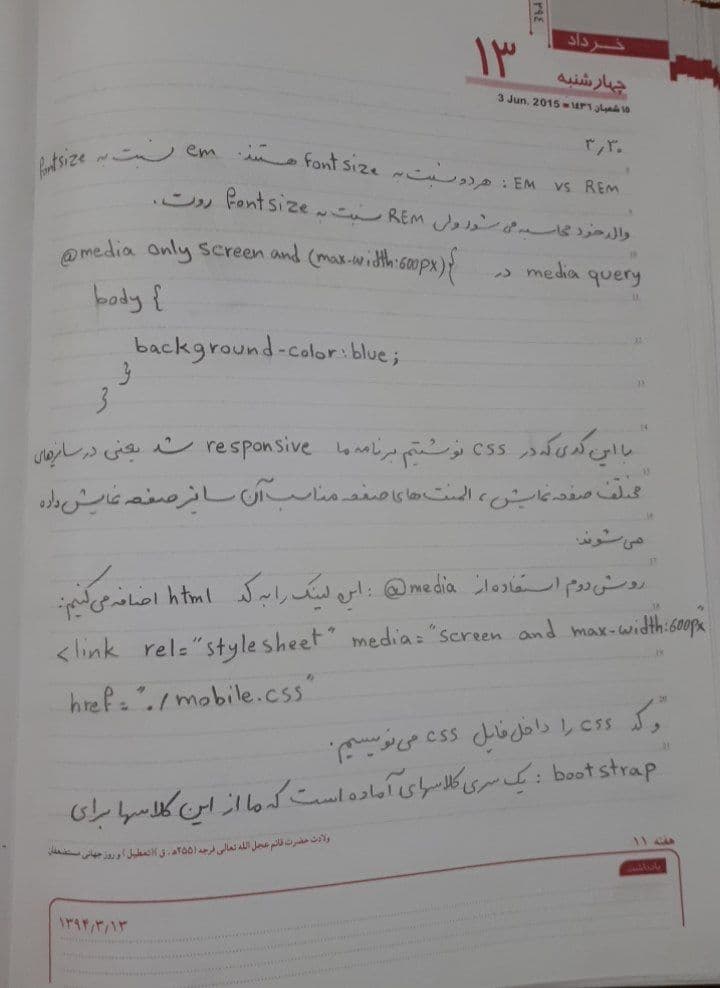 ۳۹٤
خرداد
۱۳
چهارشنبه
3 Jun. 2015 ■ ۱۵ شعبان ۱٤۳٦
۳٫۳۰
EM vs REM : هردو نسبت به font size هستند. em نسبت به fontsize
والد خود محاسبه می شود ولی REM نسبت به font size روت.
media query در @media only screen and (max-width:600px){
body {
background-color:blue;
}
}
با این کدی که در css نوشتیم برنامه ما responsive شد یعنی در سایزهای
مختلف صفحه نمایش، المنت های صفحه مناسب آن سایز صفحه نمایش داده
می شوند.
روش دوم استفاده از @media : این لینک را به کد html اضافه می کنیم:
<link rel="stylesheet" media="screen and max-width:600px"
href="./mobile.css"
و کد css را داخل فایل css می نویسیم.
bootstrap : یک سری کلاسهای آماده است که ما از این کلاسها برای
هفته ۱۱
ولادت حضرت قائم عجل الله تعالی فرجه (۲۵۵ه‍ .ق)(تعطیل) و روز جهانی مستضعفان
یادداشت
۱۳۹۴/۳/۱۳